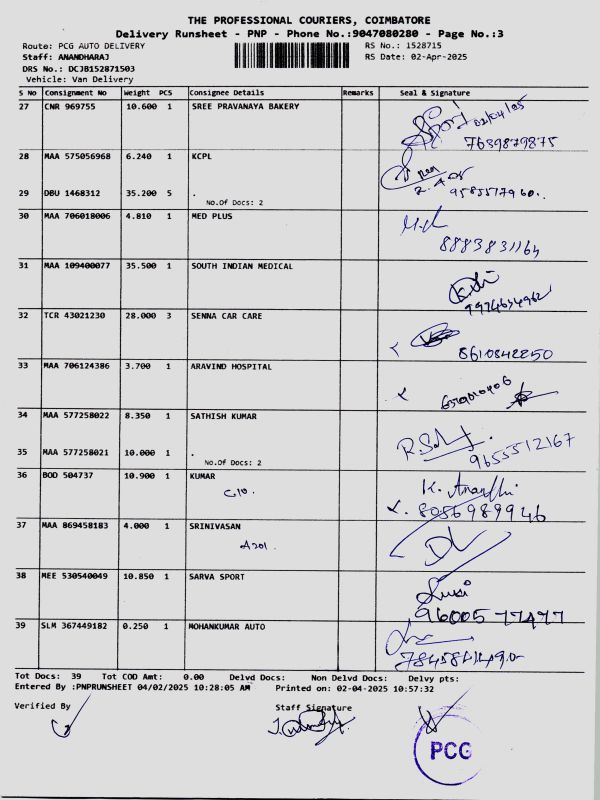 THE PROFESSIONAL COURIERS, COIMBATORE
Delivery Runsheet - PNP - Phone No.:9047080280 - Page No.:3
Route: PCG AUTO DELIVERY RS No.: 1528715
Staff: ANANDHARAJ RS Date: 02-Apr-2025
DRS No.: DCJB152871503
Vehicle: Van Delivery
S No Consignment No Weight PCS Consignee Details Remarks Seal & Signature
27 CNR 969755 10.600 1 SREE PRAVANAYA BAKERY
02/04/25
7639879875
28 MAA 575056968 6.240 1 KCPL
29 DBU 1468312 35.200 5 .
No.Of Docs: 2
9583517960.
30 MAA 706018006 4.810 1 MED PLUS
8883831164
31 MAA 109400077 35.500 1 SOUTH INDIAN MEDICAL
9974654962
32 TCR 43021230 28.000 3 SENNA CAR CARE
8610842250
33 MAA 706124386 3.700 1 ARAVIND HOSPITAL
34 MAA 577258022 8.350 1 SATHISH KUMAR
35 MAA 577258021 10.000 1 .
9655512167
No.Of Docs: 2
36 BOD 504737 10.900 1 KUMAR
K. Anandhi
8056989946
37 MAA 869458183 4.000 1 SRINIVASAN
38 MEE 530540049 10.850 1 SARVA SPORT
9600577477
39 SLM 367449182 0.250 1 MOHANKUMAR AUTO
Tot Docs: 39 Tot COD Amt: 0.00 Delvd Docs: Non Delvd Docs: Delvy pts:
Entered By :PNPRUNSHEET 04/02/2025 10:28:05 AM Printed on: 02-04-2025 10:57:32
Verified By Staff Signature
PCG